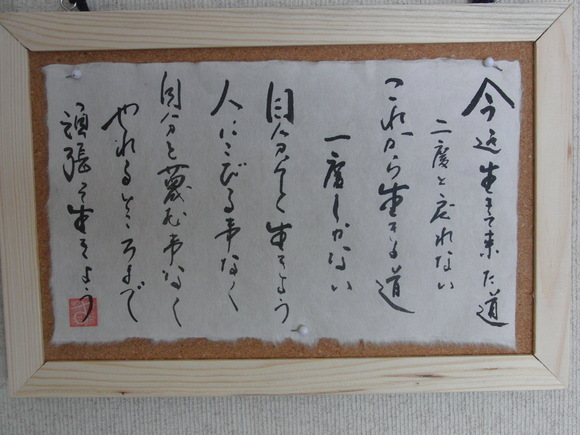 今迄生きて来た道
二度と戻れない
これから生きる道
一度しかない
自分らしく生きよう
人にこびる事なく
自分を蔑む事なく
やれるところまで
頑張って生きよう